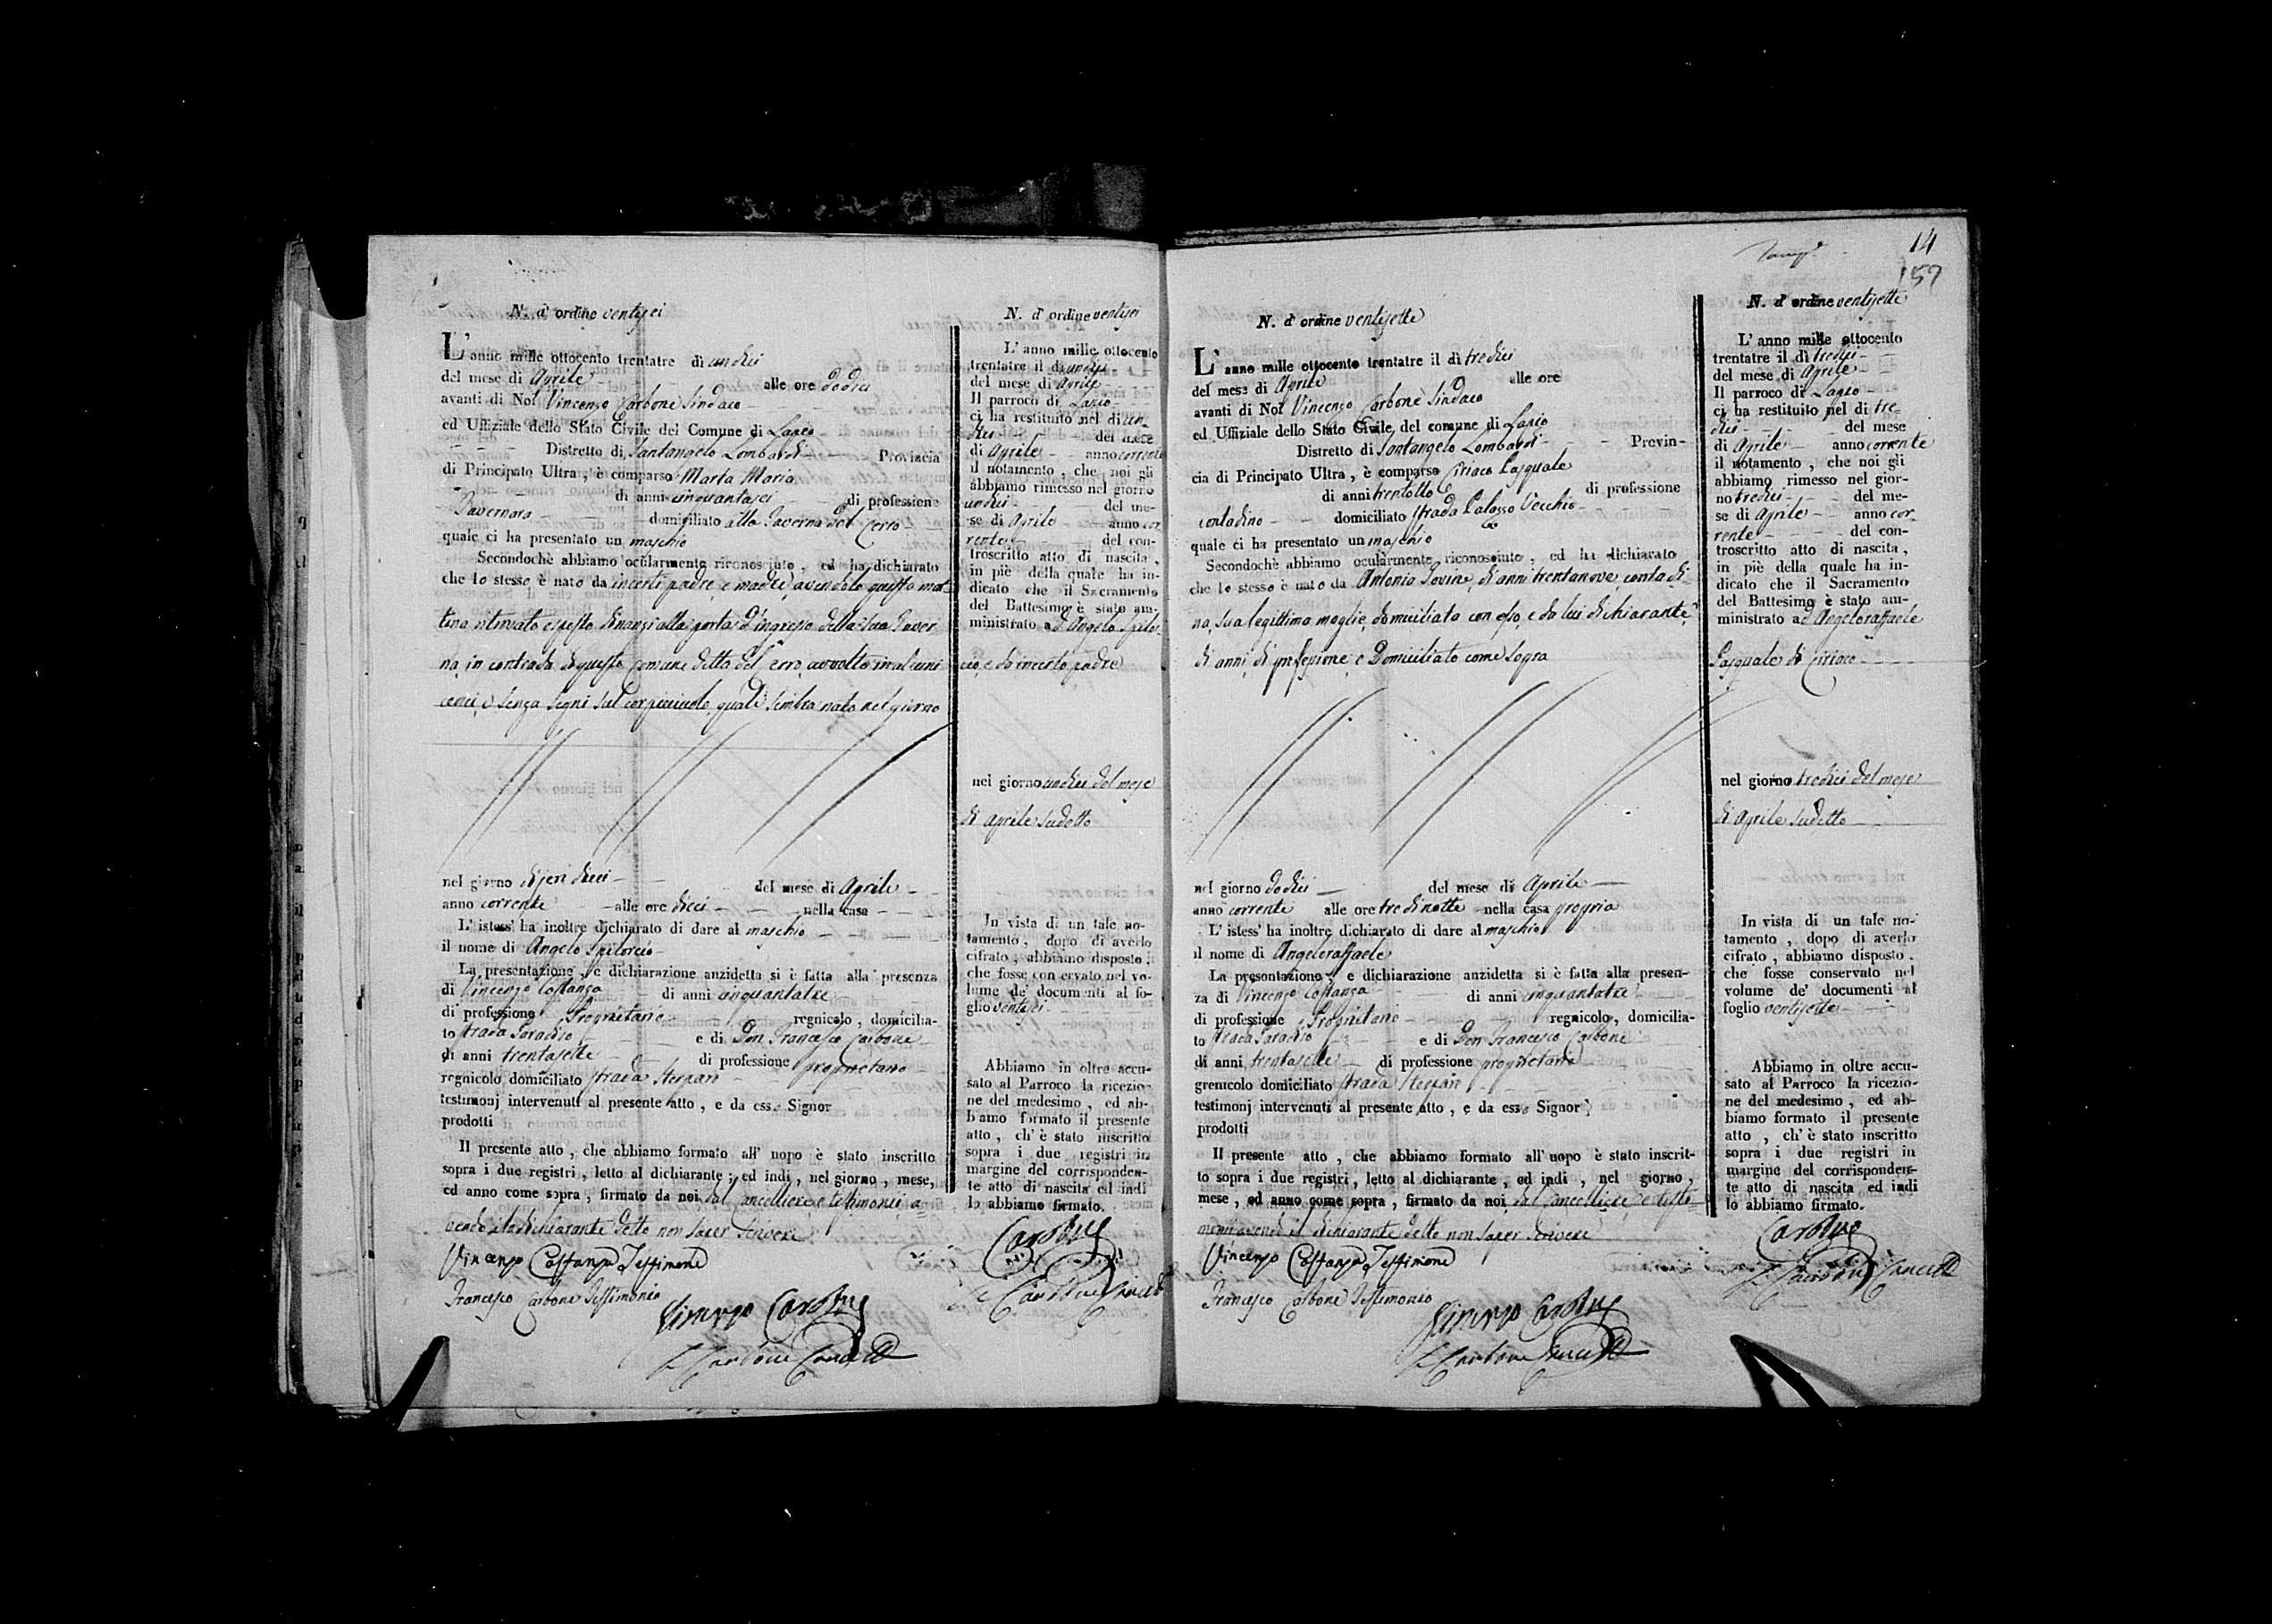 N. d' ordine ventisei
L' anno mille ottocento trentatre dì undici
del mese di Aprile alle ore dodici
avanti di Noi Vincenzo Carbone Sindaco
ed Uffiziale dello Stato Civile del Comune di Lapio
Distretto di Santangelo Lombardi Provincia
di Principato Ultra, è comparso Marta Maria
di anni cinquantasei di professione
Tavernara domiciliato alla Taverna del Cerro
quale ci ha presentato un maschio
Secondochè abbiamo ocularmente riconosciuto, ed ha dichiarato
che lo stesso è nato da incerti padre, e madre, avendolo questa mat-
tina ritrovato esposto dinanzi alla porta d'ingresso della sua Taver
na, in contrada di questo Comune detta del Cerro, avvolto in alcuni
cenci, e senza segni sul corpicciuolo, quale sembra nato nel giorno
nel giorno di jeri dieci del mese di Aprile
anno corrente alle ore dieci nella casa
L' istess' ha inoltre dichiarato di dare al maschio
il nome di Angelo Spilorcio
La presentazione, e dichiarazione anzidetta si è fatta alla presenza
di Vincenzo Costanza di anni cinquantatre
di professione Proprietario regnicolo, domicilia-
to strada Paradiso e di Don Francesco Carbone
di anni trentasette di professione proprietario
regnicolo domiciliato strada Sterpari
testimonj intervenuti al presente atto, e da ess. Signor
prodotti
Il presente atto, che abbiamo formato all' uopo è stato inscritto
sopra i due registri, letto al dichiarante; ed indi, nel giorno, mese,
ed anno come sopra, firmato da noi dal Cancelliere, e testimonii a=
vendo la dichiarante detto non saper scrivere
Vincenzo Costanza Testimone
Francesco Carbone Testimonio
Vincenzo Carbone
Carbone Cancell
N. d' ordine ventisei
L' anno mille ottocento
trentatre il dì undici
del mese di Aprile
Il parroco di Lapio
ci ha restituito nel dì un-
dici del mese
di Aprile anno corrente
il notamento, che noi gli
abbiamo rimesso nel giorno
undici del me-
se di Aprile anno cor
rente del con-
troscritto atto di nascita,
in piè della quale ha in-
dicato che il Sacramento
del Battesimo è stato am-
ministrato ad Angelo Spilor
cio, e di incerto padre
nel giorno undici del mese
di Aprile sudetto
In vista di un tale no-
tamento, dopo di averlo
cifrato, abbiamo disposto,
che fosse conservato nel vo-
lume de' documenti al fo-
glio ventisei
Abbiamo in oltre accu-
sato al Parroco la ricezio-
ne del medesimo, ed ab-
biamo formato il presente
atto, ch' è stato inscritto
sopra i due registri in
margine del corrisponden-
te atto di nascita ed indi
lo abbiamo firmato.
Carbone
Carbone Cancell
14
157
N. d' ordine ventisette
L' anno mille ottocento trentatre il dì tredici
del mese di Aprile alle ore
avanti di Noi Vincenzo Carbone Sindaco
ed Uffiziale dello Stato Civile del comune di Lapio
Distretto di Santangelo Lombardi Provin-
cia di Principato Ultra, è comparso Ciriaco Pasquale
di anni trentotto di professione
contadino domiciliato strada Palazzo Vecchio
quale ci ha presentato un maschio
Secondochè abbiamo ocularmente riconosciuto, ed ha dichiarato
che lo stesso è nato da Antonia Iovine, di anni trentanove, contadi
na, sua legittima moglie, domiciliata con esso, e da lui dichiarante,
di anni, di professione, e Domiciliato come sopra
nel giorno dodici del mese di Aprile
anno corrente alle ore tre di notte nella casa propria
L' istess' ha inoltre dichiarato di dare al maschio
il nome di Angeloraffaele
La presontazione, e dichiarazione anzidetta si è fatta alla presen-
za di Vincenzo Costanza di anni cinquantatre
di professione Proprietario regnicolo, domicilia-
to strada Paradiso e di Don Francesco Carbone
di anni trentasette di professione proprietario
grenicolo domiciliato strada Sterpari
testimonj intervenuti al presente atto, e da esso Signor
prodotti
Il presente atto, che abbiamo formato all' uopo è stato inscrit-
to sopra i due registri, letto al dichiarante, ed indi, nel giorno,
mese, ed anno come sopra, firmato da noi dal Cancelliere, e testi-
monii avendo il dichiarante detto non saper scrivere
Vincenzo Costanza Testimone
Francesco Carbone Testimonio
Vincenzo Carbone
Carbone Cancell
N. d' ordine ventisette
L' anno mille ottocento
trentatre il dì tredici
del mese di Aprile
Il parroco di Lapio
ci ha restituito nel dì tre-
dici del mese
di Aprile anno corrente
il notamento, che noi gli
abbiamo rimesso nel gior-
no tredici del me-
se di Aprile anno cor-
rente del con-
troscritto atto di nascita,
in piè della quale ha in-
dicato che il Sacramento
del Battesimo è stato am-
ministrato ad Angeloraffaele
Pasquale di Ciriaco
nel giorno tredici del mese
di Aprile sudetto
In vista di un tale no-
tamento, dopo di averlo
cifrato, abbiamo disposto.
che fosse conservato nel
volume de' documenti al
foglio ventisette
Abbiamo in oltre accu-
sato al Parroco la ricezio-
ne del medesimo, ed ab-
biamo formato il presente
atto, ch' è stato inscritto
sopra i due registri in
margine del corrisponden-
te atto di nascita ed indi
lo abbiamo firmato.
Carbone
Carbone Cancell